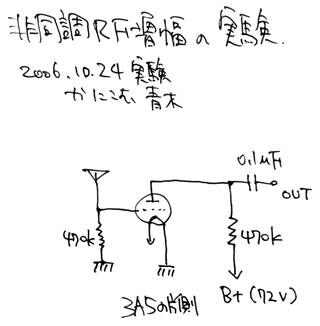 非同調RF増幅の実験.
2006.10.24 実験
かにこむ 青木
0.1μF
OUT
470k
470k
B+(72V)
3A5の片側